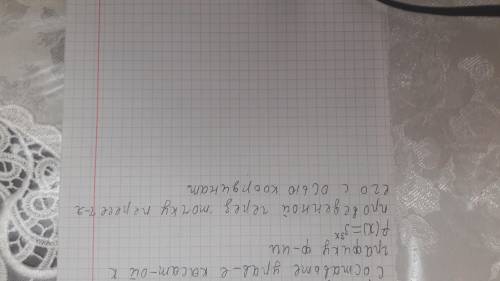 Составьте урав-е касат-ой к
графику ф-ии
f(x)=3³ˣ
проведенной через точку пересеч-я
его с осью координат